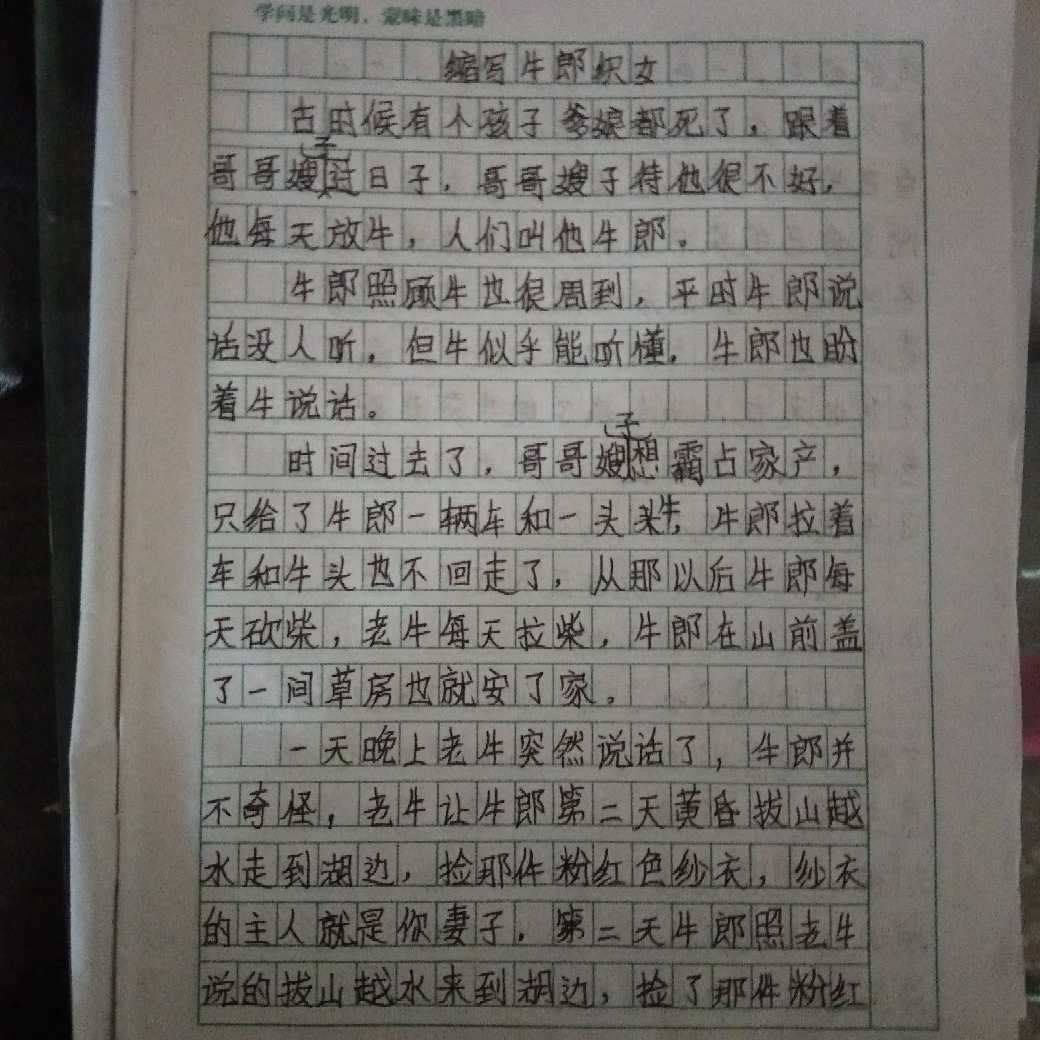 学问是光明，蒙昧是黑暗
缩写牛郎织女
古时候有个孩子爹娘都死了，跟着
哥哥嫂子过日子，哥哥嫂子待他很不好，
他每天放牛，人们叫他牛郎。
牛郎照顾牛也很周到，平时牛郎说
话没人听，但牛似乎能听懂，牛郎也盼
着牛说话。
时间过去了，哥哥嫂子想霸占家产，
只给了牛郎一辆车和一头牛，牛郎拉着
车和牛头也不回走了，从那以后牛郎每
天砍柴，老牛每天拉柴，牛郎在山前盖
了一间草房也就安了家。
一天晚上老牛突然说话了，牛郎并
不奇怪，老牛让牛郎第二天黄昏拔山越
水走到湖边，捡那件粉红色纱衣，纱衣
的主人就是你妻子。第二天牛郎照老牛
说的拔山越水来到湖边，捡了那件粉红